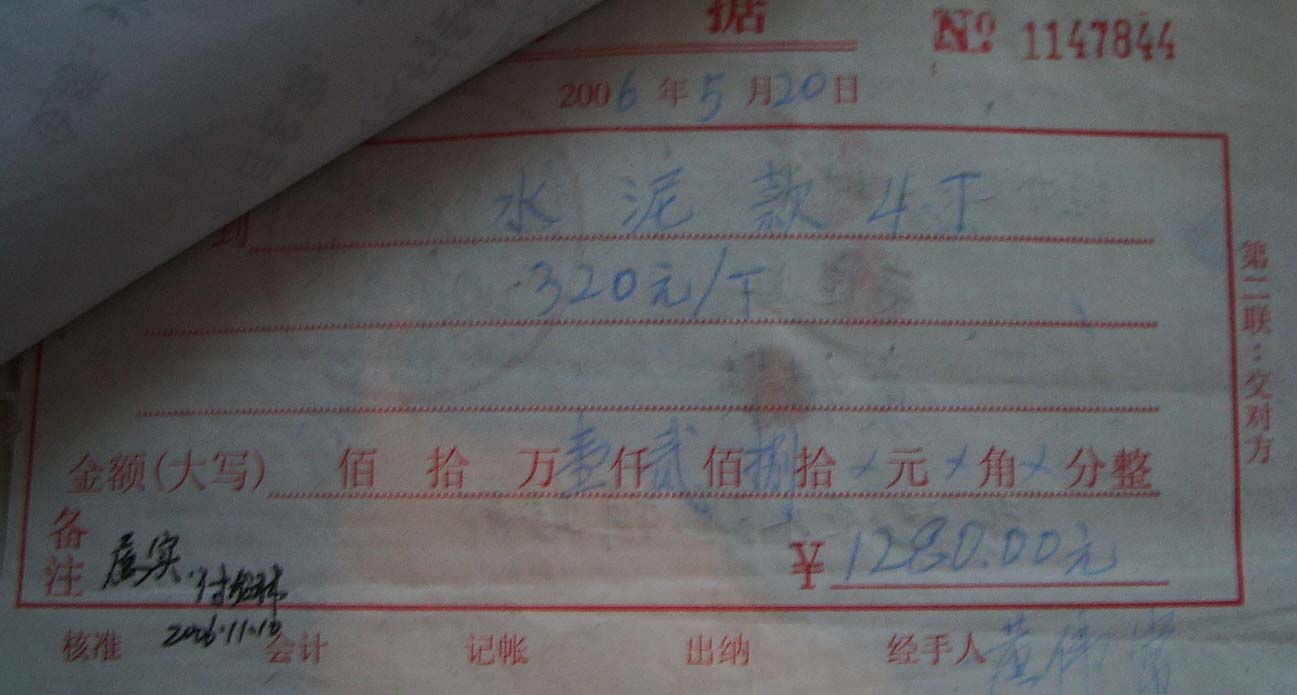 据 № 1147844
2006年5月20日
到 水泥款4丁
320元/丁
金额(大写) 佰拾万壹仟贰佰捌拾×元×角×分整
备注 属实
¥1280.00元
2006.11.10
核准 会计 记帐 出纳 经手人
第二联:交对方